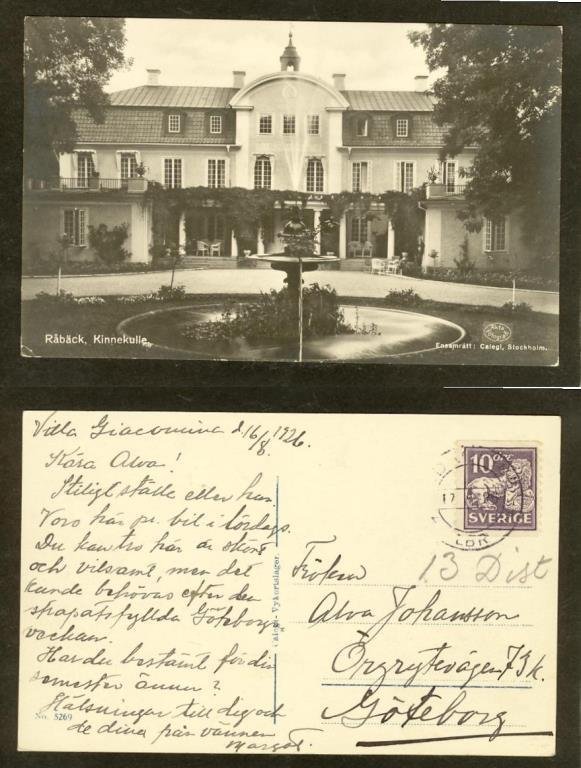 Råbäck, Kinnekulle.
Ensamrätt: Calegi, Stockholm.
Villa Giacomina d. 16/8 1926.
Kära Alva!
Stiligt ställe eller hur.
Voro här pr. bil i lördags.
Du kan tro här är skönt
och vilsamt, men det
kunde behövas efter den
skapatsfyllda Göteborgs
veckan.
Har du bestämt för din
semester ännu?
Hälsningar till dig och
de dina från vännen
Margot.
No. 5269
Calegi-Vykortslager.
10 ÖRE
SVERIGE
17
LBR
13 Dist
Fröken
Alva Johansson
Örgrytevägen 73 k.
Göteborg